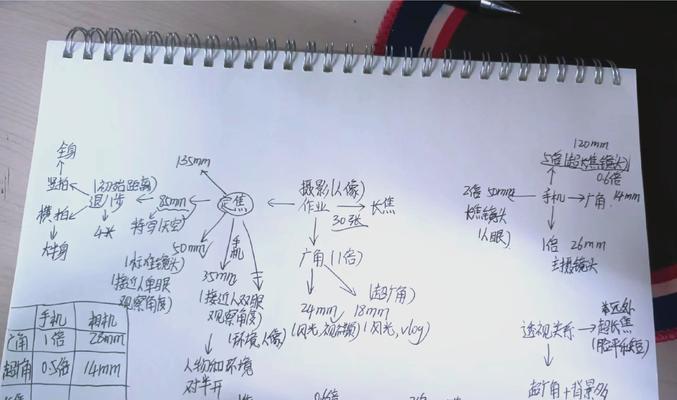 120mm
5倍(超长焦镜头)
0.6倍
全身
135mm
摄影(人像)
竖拍
(初始距离)
2倍 50mm
手机
广角 14mm
横拍
退1步
85mm
定焦
作业
长焦
30张
长焦镜头
(人眼)
4米
特写(夭空)
大半身
50mm
手机
广角(1倍)
1倍 26mm
主摄镜头
(标准镜头)
(接近人单眼
观察角度)
35mm
(接近人双眼
观察角度)
(超广角)
24mm
18mm
(风光, vlog)
(环境人像)
透视关系
超长焦
(脸平
手机 相机
广角 1倍 28mm
超广角 0.5倍 14mm
人物和环境
对半开
0.6倍
超广角+背景